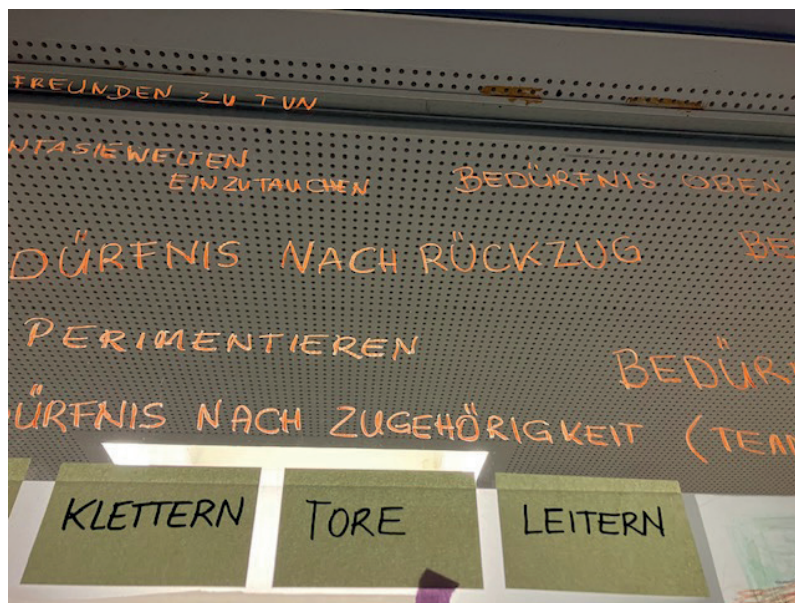 FREUNDEN ZU TUN
NTASIEWELTEN
EINZUTAUCHEN
BEDÜRFNIS OBEN
DÜRFNIS NACH RÜCKZUG
BE
PERIMENTIEREN
BEDÜR
DÜRFNIS NACH ZUGEHÖRIGKEIT (TEAM
KLETTERN
TORE
LEITERN